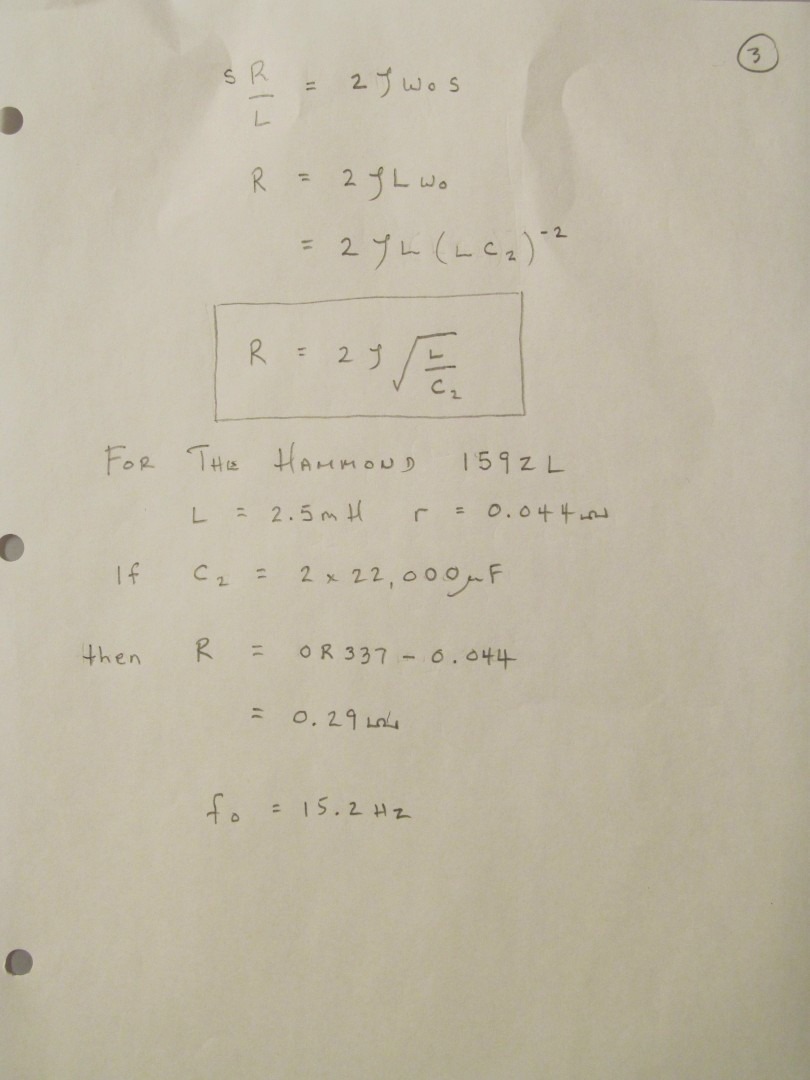 3
s R/L = 2 ζ ω₀ s
R = 2 ζ L ω₀
= 2 ζ L (L C₂)⁻²
R = 2 ζ √(L/C₂)
FOR THE HAMMOND 159ZL
L = 2.5mH r = 0.044Ω
If C₂ = 2 x 22,000μF
then R = 0R337 - 0.044
= 0.29Ω
f₀ = 15.2 Hz